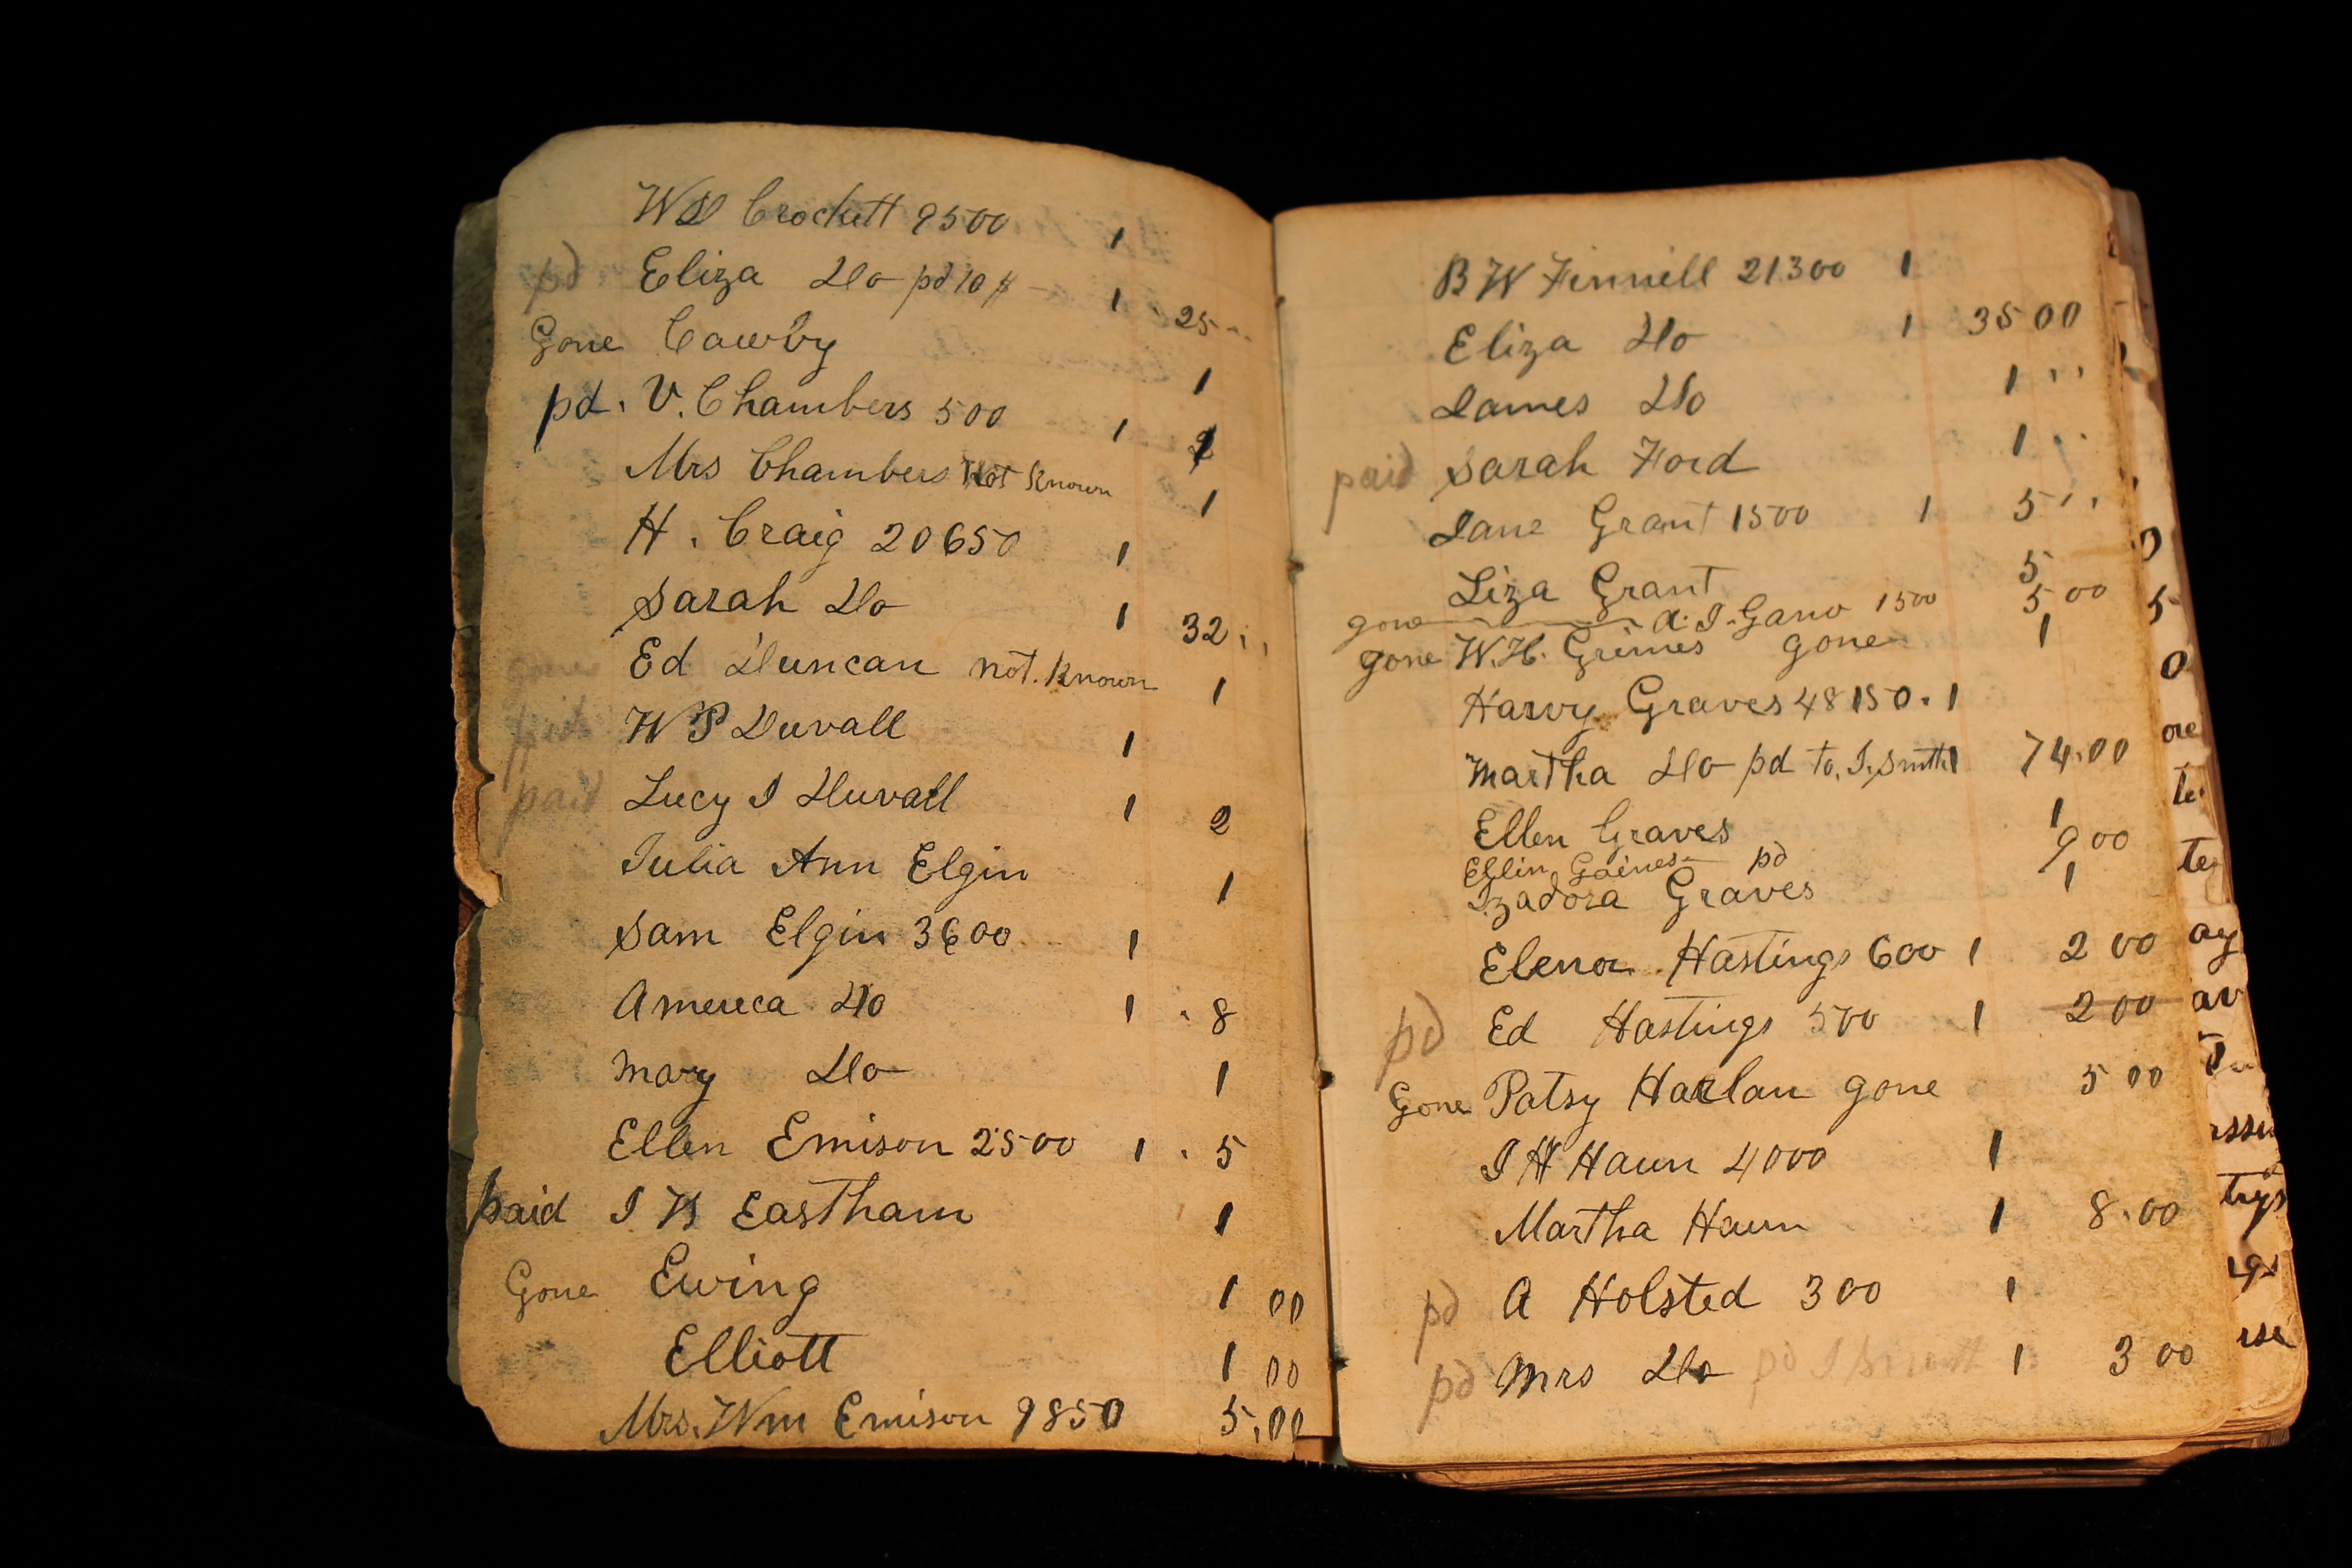 WD Crockett 9500 1
pd Eliza Do pd 10 $ - 1 25
Gone Cawby 1
pd. V. Chambers 500 1
Mrs Chambers Not Known 1
H. Craig 20650 1
Sarah Do 1 32
gone Ed Duncan not. Known 1
paid W P Duvall 1
paid Lucy J Duvall 1 2
Julia Ann Elgin 1
Sam Elgin 3600 1
Amereca Do 1 8
Mary Do 1
Ellen Emison 2500 1 5
paid J H Eastham 1
Gone Ewing 1 00
Elliott 1 00
Mrs. Wm Emison 9850 5.00
B W Finnell 21300 1
Eliza Do 1 35 00
James Do 1 ''
paid Sarah Ford 1 ''
Jane Grant 1500 1 5 ''
Liza Grant 5
gone A. J. Gano 1500 5 00
gone W. H. Grimes gone 1
Harvy Graves 48150. 1
Martha Do pd to. J. Smith 1 74.00
Ellen Graves 1
Ellin Gaines pd 9 00
Izadora Graves 1
Elenor Hastings 600 1 2 00
pd Ed Hastings 500 1 2 00
Gone Patsy Harlan gone 5 00
J H Haun 4000 1
Martha Haun 1 8.00
pd A Holsted 300 1
pd Mrs Do pd J Smith 1 3 00